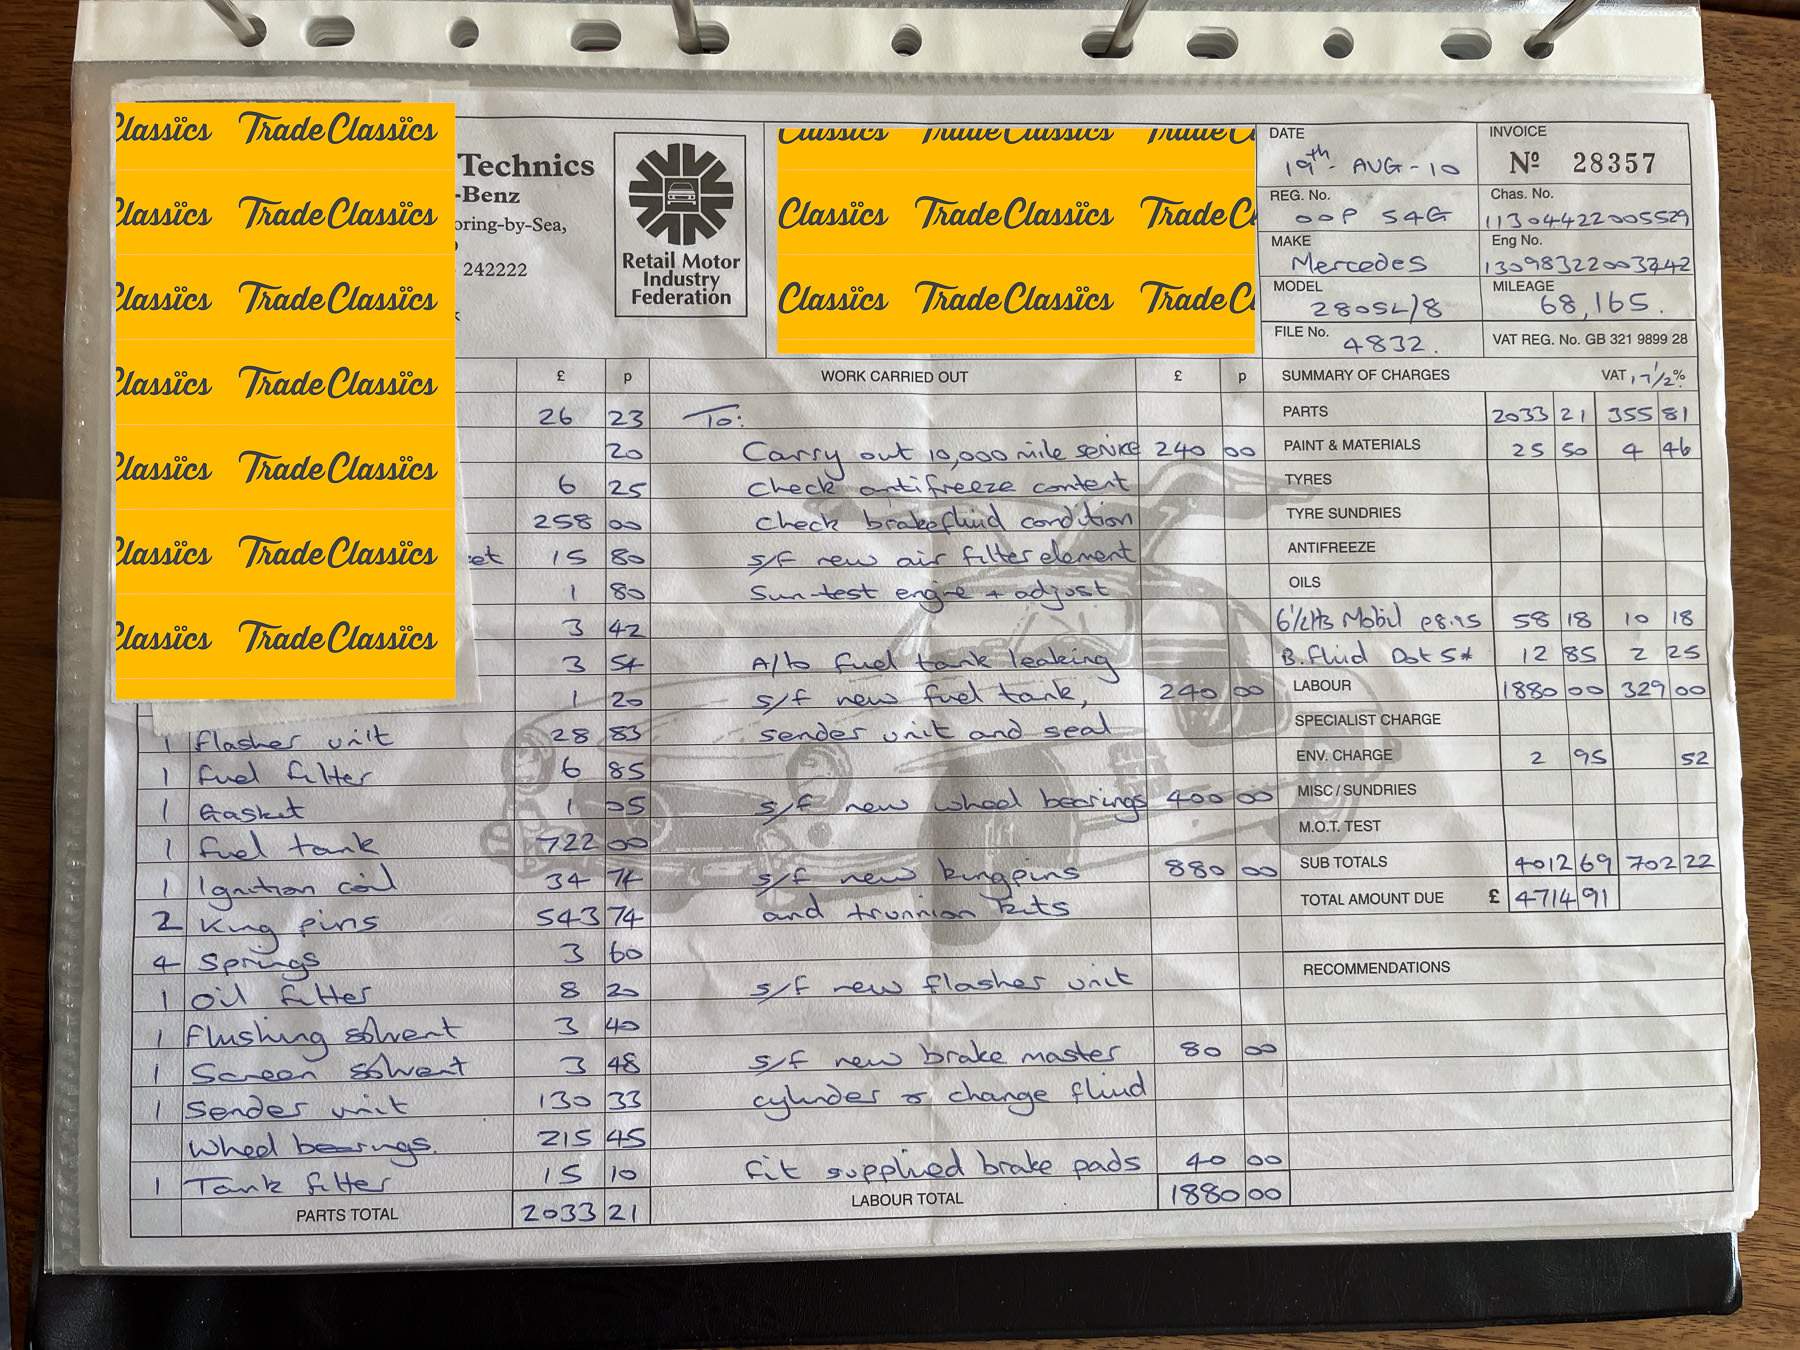 Classics Trade Classics
Classics Trade Classics
Classics Trade Classics
Classics Trade Classics
Classics Trade Classics
Classics Trade Classics
Classics Trade Classics
Technics
-Benz
oring-by-Sea,
242222
Retail Motor
Industry
Federation
Classics Trade Classics Trade C
Classics Trade Classics Trade C
Classics Trade Classics Trade C
DATE
19th - AUG - 10
INVOICE
Nº 28357
REG. No.
OOP 54G
Chas. No.
11304422005529
MAKE
Mercedes
Eng No.
MODEL
280SL/8
MILEAGE
68,165.
FILE No.
4832.
VAT REG. No. GB 321 9899 28
£ p
26 23
20
6 25
258 00
et 15 80
1 80
3 42
3 54
1 20
1 flasher unit 28 83
1 fuel filter 6 85
1 Gasket 1 05
1 fuel tank 722 00
1 Ignition coil 34 74
2 King pins 543 74
4 Springs 3 60
1 Oil filter 8 20
1 flushing solvent 3 40
1 Screen solvent 3 48
1 Sender unit 130 33
Wheel bearings. 215 45
1 Tank filter 15 10
PARTS TOTAL 2033 21
WORK CARRIED OUT £ p
To:
Carry out 10,000 mile service 240 00
check antifreeze content
check brakefluid condition
s/f new air filter element
Sun-test engine + adjust
A/to fuel tank leaking
s/f new fuel tank, 240 00
sender unit and seal
s/f new wheel bearings 400 00
s/f new kingpins 880 00
and trunnion kits
s/f new flasher unit
s/f new brake master 80 00
cylinder & change fluid
fit supplied brake pads 40 00
LABOUR TOTAL 1880 00
SUMMARY OF CHARGES VAT 17 1/2 %
PARTS 2033 21 355 81
PAINT & MATERIALS 25 50 4 46
TYRES
TYRE SUNDRIES
ANTIFREEZE
OILS
6 1/2 ltrs Mobil @8.95 58 18 10 18
B. fluid Dot 5* 12 85 2 25
LABOUR 1880 00 329 00
SPECIALIST CHARGE
ENV. CHARGE 2 95 52
MISC / SUNDRIES
M.O.T. TEST
SUB TOTALS 4012 69 702 22
TOTAL AMOUNT DUE £ 4714 91
RECOMMENDATIONS